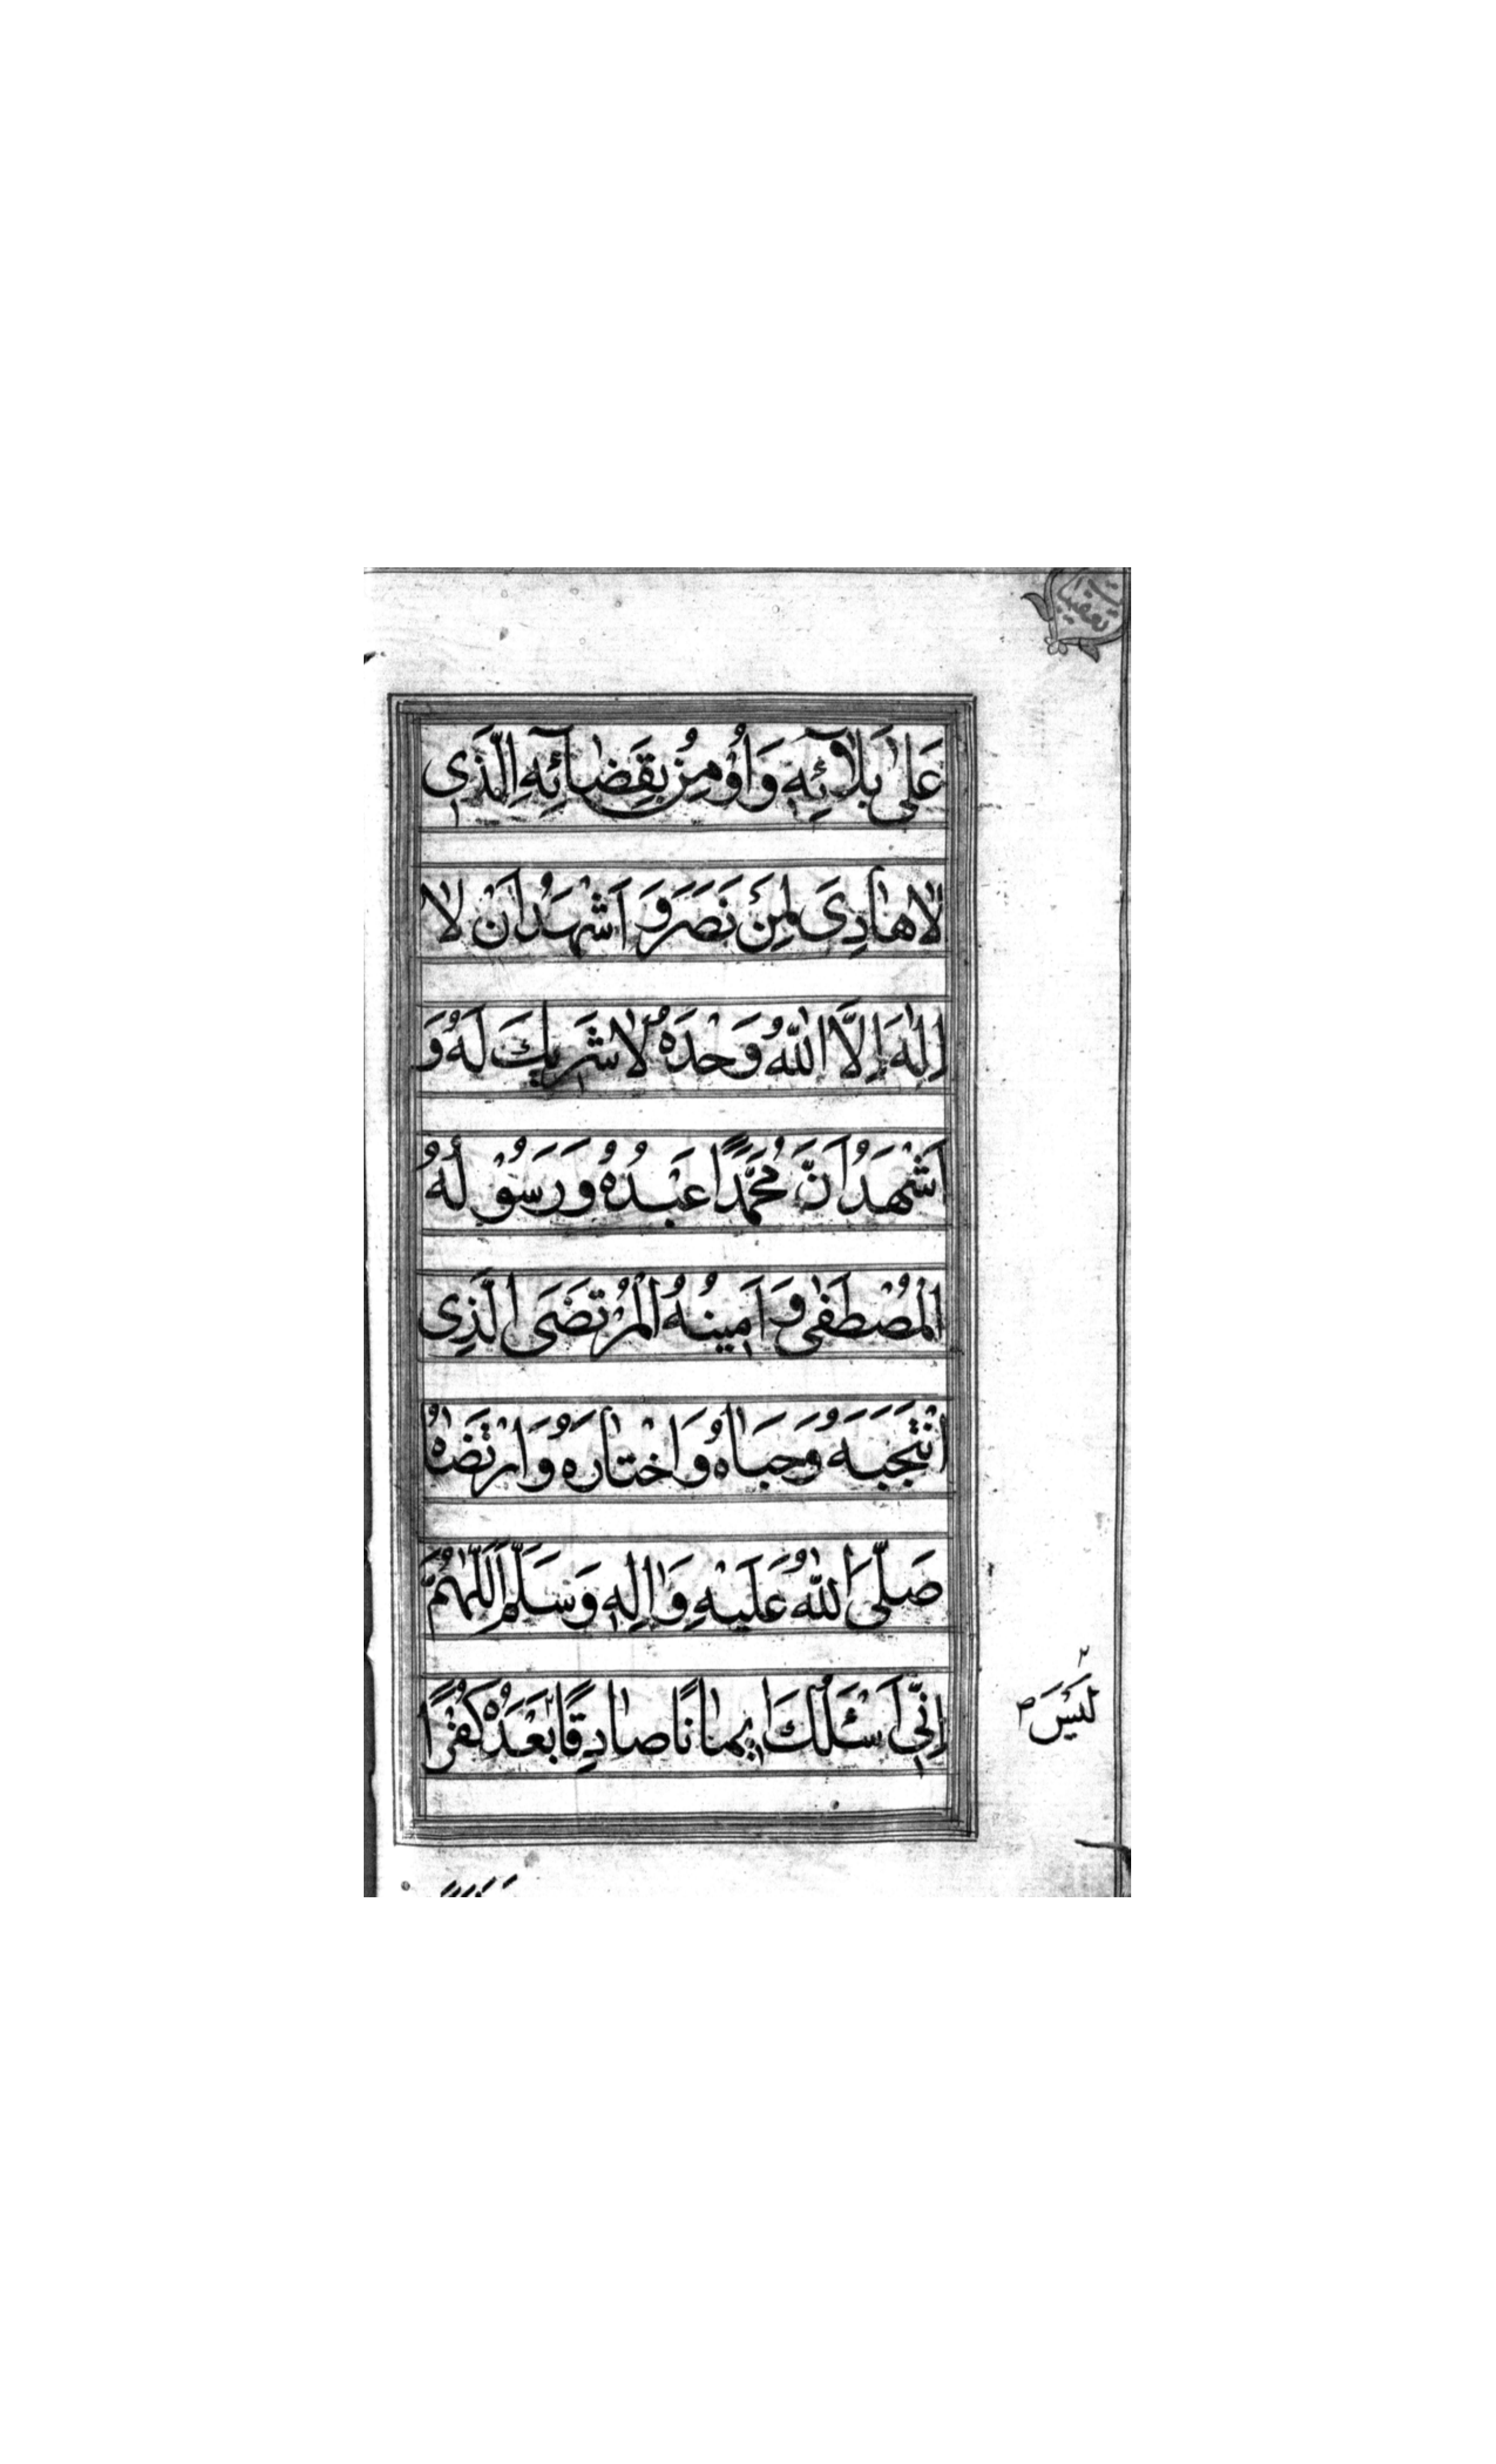 تعقیبات
عَلىٰ بَلَائِهِ وَاُوْمِنُ بِقَضَائِهِ الَّذِى
لَا هٰادِىَ لِمَنْ نَصَرَ وَ اَشْهَدُ اَنْ لَا
اِلٰهَ اِلَّا اللّٰهُ وَحْدَهُ لَا شَرِيكَ لَهُ وَ
اَشْهَدُ اَنَّ مُحَمَّدًا عَبْدُهُ وَرَسُوْلُهُ
الْمُصْطَفٰى وَ اَمِينُهُ الْمُرْتَضَى الَّذِى
انْتَجَبَهُ وَحَبَاهُ وَاخْتٰارَهُ وَارْتَضَاهُ
صَلَّى اللّٰهُ عَلَيْهِ وَاٰلِهِ وَسَلَّمَ اَللّٰهُمَّ
اِنِّى اَسْئَلُكَ اِيمٰانًا صٰادِقًا بَعْدَهُ كُفْرًا
لَيْسَ